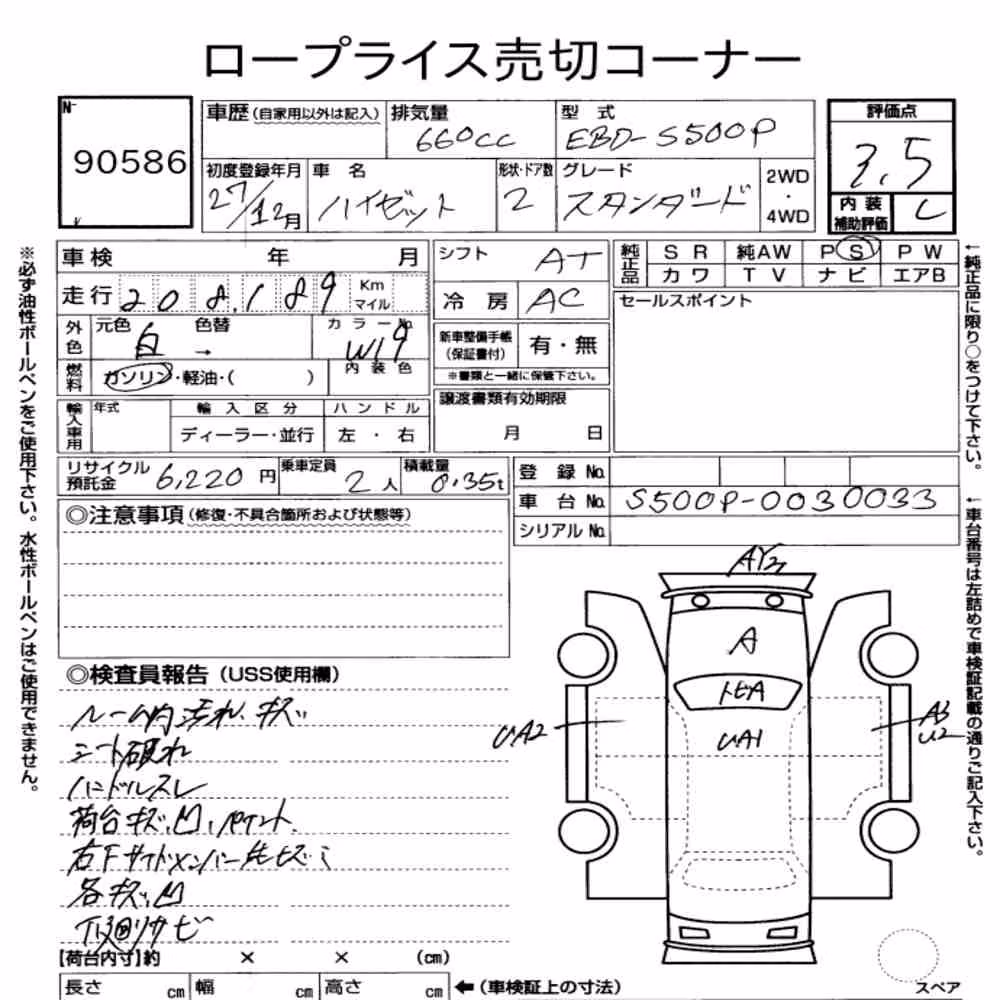 ロープライス売切コーナー
No
90586
車歴 (自家用以外は記入)
排気量
660cc
型式
EBD-S500P
評価点
3.5
内装補助評価
C
初度登録年月
27/12月
車名
ハイゼット
形状・ドア数
2
グレード
スタンダード
2WD
・
4WD
車検 年 月
走行 208,189 Km マイル
外色
元色
白
色替
→
カラーNo.
W19
燃料
ガソリン・軽油・( )
内装色
輸入車用
年式
輸入区分
ディーラー・並行
ハンドル
左・右
シフト
AT
冷房
AC
新車整備手帳
(保証書付)
有・無
※書類と一緒に保管下さい。
譲渡書類有効期限
月 日
純正品
SR 純AW PS PW
カワ TV ナビ エアB
セールスポイント
リサイクル預託金
6,220円
乗車定員
2人
積載量
0.35t
登録No.
車台No.
S500P-0030033
シリアルNo.
◎注意事項 (修復・不具合箇所および状態等)
◎検査員報告 (USS使用欄)
ルーム内汚れ、キズ
シート破れ
ハンドルスレ
荷台キズ、凹、ペイント
右下サイドメンバー先
各キズ、凹
下廻りサビ
【荷台内寸】約 × × (cm)
長さ cm 幅 cm 高さ cm
←(車検証上の寸法)
A
トビA
UA1
UA2
A3
U2
スペア
※必ず油性ボールペンをご使用下さい。水性ボールペンはご使用できません。
←純正品に限り○をつけて下さい。
←車台番号は左詰めで車検証記載の通りご記入下さい。